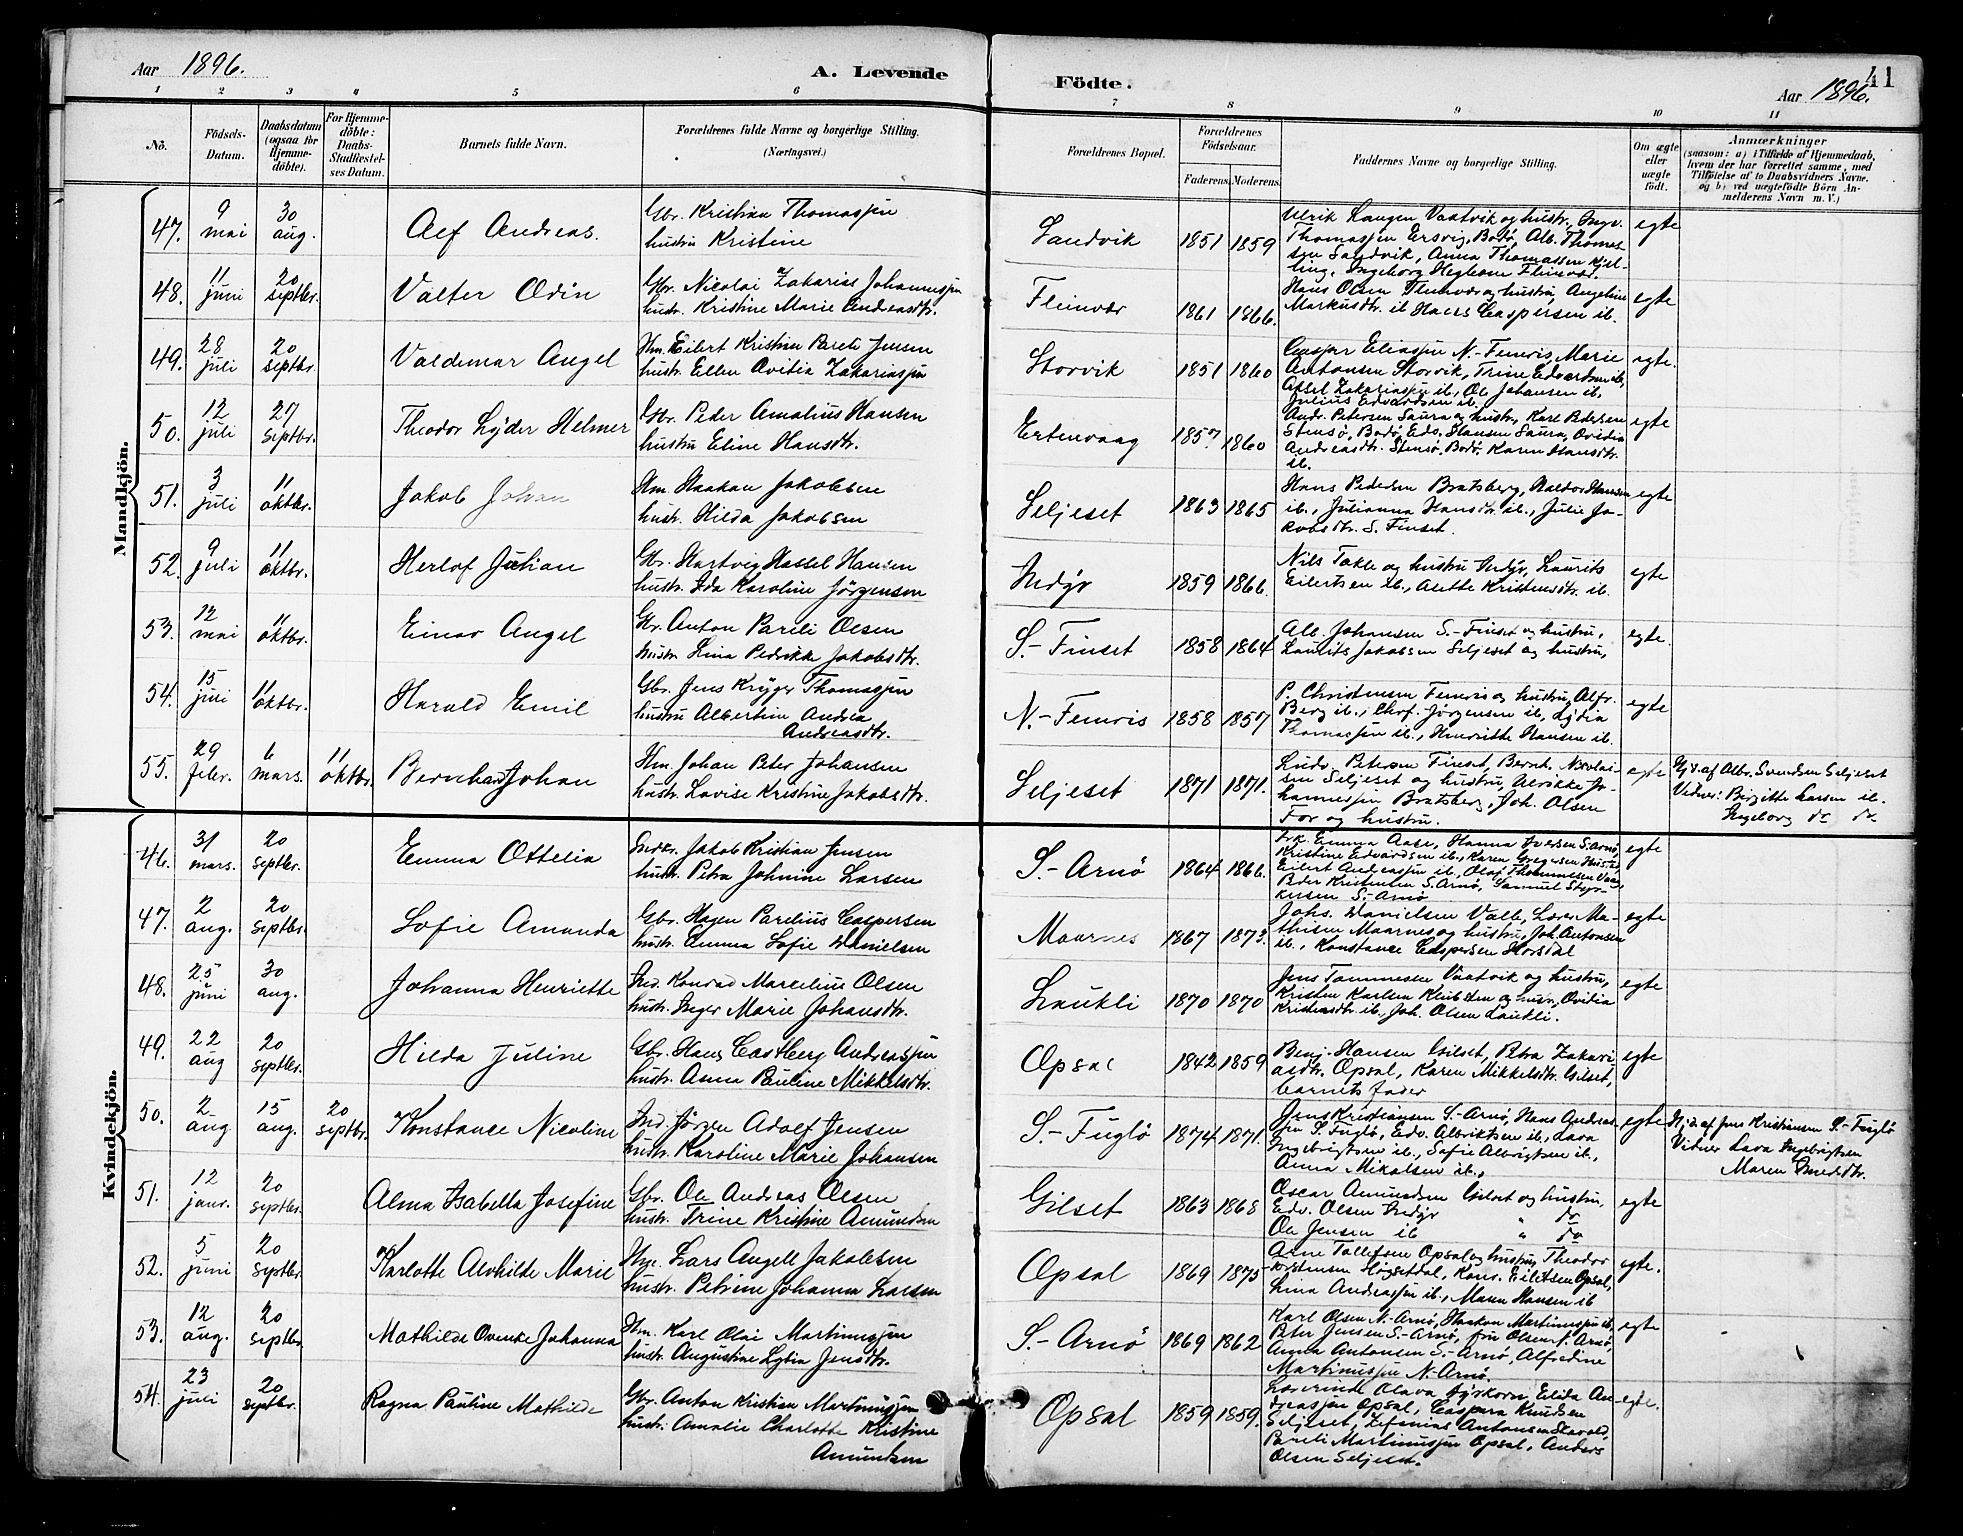 Aar 1896.
A. Levende
Födte.
41
Aar 1896.
1 2 3 4 5 6 7 8 9 10 11
Nô.
Födsels-
Datum.
Daabsdatum
(ogsaa for
Hjemme-
döbte).
For Hjemme-
döbte:
Daabs-
Stadfæstel-
ses Datum.
Barnets fulde Navn.
Forældrenes fulde Navne og borgerlige Stilling.
(Næringsvei.)
Forældrenes Bopæl.
Forældrenes
Födselsaar.
Faderens. Moderens.
Faddernes Navne og borgerlige Stilling.
Om ægte
eller
uægte
födt.
Anmærkninger
(saasom: a) i Tilfælde af Hjemmedaab,
hvem der har forrettet samme, med
Tilföielse af to Daabsvidners Navne.
og b) ved uægtefödte Börn An-
melderens Navn m. V.)
Mandkjön.
47. 9 mai 30 aug. Alf Andreas.
Gbr. Kristian Thomassen
hustru Kristine
Sandvik 1851 1859
Ulrik Langen Vaatvik og hustr., Ingv.
Thomassen Ersvig, Bodö, Alb. Thomas-
sen Sandvik, Anna Thomassen Kjel-
ling, Ingeborg Fleinvær.
egte
48. 11 juni 20 septbr. Valter Odin
Gbr. Nicolai Zakarias Johannessen
hustr. Kristine Marie Andreasdtr.
Fleinvær 1861 1866.
Hans Olsen Fleinvær og hustru, Angeline
Markusdtr. ib Hans Caspersen ib.
egte
49. 28 juli 20 septbr. Valdemar Angel
Hm. Eilert Kristian Pareli Jensen
hustr. Ellen Ovidia Zakariassen
Storvik 1851 1860
Caspar Eliassen N.-Femris, Marie
Antonsen Storvik, Trine Edvardsen ib,
Zakariassen ib., Ole Johansen ib,
Julius Edvardsen ib.
egte.
50. 12 juli 27 septbr. Theodor Lyder Helmer
Gbr. Peder Amalius Hansen
hustru Eline Hansdtr.
Ertenvaag 1857 1860
Andr. Petersen Saura og hustru, Karl Petersen
Stensö, Bodö, Edv. Hansen Saura, Ovidia
Andreasdtr. Stensö, Bodö, Karen Hansdtr.
ib.
egte
51. 3 juli 11 oktbr. Jakob Johan
Hm. Haakon Jakobsen
hustr. Hilda Jakobsen
Seljeset 1863 1865
Hans Pedersen Bratsberg, Haldor Hansen
ib., Julianna Hansdtr. ib., Julie Ja-
kobsdtr. S. Finset.
egte
52. 9 juli 11 oktbr. Herlof Julian
Gbr. Hartvig Hassel Hansen
hustr. Ida Karoline Jörgensen
Indyr 1859 1866.
Nils Takle og hustru Indyr, Laurits
Eilertsen ib., Anette Kristensdtr. ib.
egte
53. 12 mai 11 oktbr. Einar Angel
Gbr. Anton Pareli Olsen
hustr. Lina Pedrikke Jakobsdtr.
S.-Finset 1858 1864
Alb. Johansen S.-Finset og hustru,
Laurits Jakobsen Seljeset og hustru,
egte.
54. 15 juli 11 oktbr. Harald Emil
Gbr. Jens Krÿger Thomassen
hustru Albertine Andrea
Andreasdtr.
N.-Femris 1858 1857
P. Christensen Femris og hustru, Alfr.
Berg ib., Chrf. Jörgensen ib, Lydia
Thomassen ib., Henriette Hansen ib.
egte
55. 29 febr. 6 mars. 11 oktbr. Bernhard Johan
Hm. Johan Peter Johansen
hustr. Lovise Kristine Jakobsdtr.
Seljeset 1871 1871.
Ludv. Petersen Finset, Bernt. Nicolai-
sen Seljeset og hustru, Ulrikke Jo-
hannessen Bratsberg, Joh. Olsen
For og hustru.
egte
Hjd. af Albr. Svendsen Seljeset
Vidner: Birgitte Larsen ib.
Ingeborg do do.
Kvindekjön.
46. 31 mars. 20 septbr. Emma Ottelia
Indr. Jakob Kristian Jensen
hustr. Petra Johnine Larsen
S.-Arnö 1864 1866.
Frk. Emma Aase, Hanna Iversen S. Arnö,
Kristine Edvardsen ib., Karen Gregersen
Eilert Andreassen ib., Olaf
Peder Kristensen S. Arnö, Samuel Styr-
kersen S.-Arnö
egte
47. 2 aug. 20 septbr. Sofie Amanda
Gbr. Hagen Parelius Caspersen
hustr. Emma Sofie Danielsen
Maarnes 1867 1873.
Johs. Danielsen Valle, Lars Ma-
thisen Maarnes og hustru, Joh. Antonsen
ib., Konstance Caspersen Horsdal
egte
48. 25 juni 30 aug. Johanna Henriette
Ind. Konrad Marcelius Olsen
hustr. Inger Marie Johansdtr.
Laukli 1870 1870
Jens Tommesen Vaatvik og hustru,
Kristen Karlsen og hustr, Ovidia
Kristensdtr. ib., Joh. Olsen Laukli.
egte
49. 22 aug 20 septbr. Hilda Juline
Gbr. Hans Castberg Andreassen
hustr. Anna Pauline Mikkelsdtr.
Opsal 1842 1859
Benj. Hansen Gilset, Petra Zakari
asdtr. Opsal, Karen Mikkelsdtr. Gilset,
barnets fader
egte
50. 2 aug 15 aug. 20 septbr. Konstance Nicoline
Ind. Jörgen Adolf Jensen
hustr. Karoline Marie Johansen
S.-Fuglö 1874 1871.
Jens Kristiansen S.-Arnö, Hans Andreas
sen S. Fuglö, Edv. Albriktsen ib., Lava
Ingebrigtsen ib., Sofie Albrigtsen ib.,
Anna Mikalsen ib.,
egte
Hjd. af Jens Kristiansen S.-Fuglö
Vidner Lava Ingebrigtsen
Maren
51. 12 janr. 20 septbr. Alma Isabella Josefine
Gbr. Ole Andreas Olsen
hustr. Trine Kristine Amundsen
Gilset 1863 1868
Oscar Amundsen Gilset og hustru,
Edv. Olsen Indyr " do
Ole Jensen ib " do
egte
52. 5 juni 20 septbr. Karlotte Alvhilde Marie
Hm. Lars Angell Jakobsen
hustr. Petrine Johanna Larsen
Opsal 1869 1875
Arne Tollefsen Opsal og hustru, Theodor
Torstensen Högsetdal, Konr. Eilertsen Opsal,
Lina Andreassen ib., Maren Hansen ib
egte.
53. 12 aug. 20 septbr. Mathilde Ovenke Johanna
Hm. Karl Olai Martinussen
hustr. Augustine Lydia Jensdtr.
S.-Arnö 1869 1862
Karl Olsen N.-Arnö, Haakon Martinussen ib,
Peter Jensen S.-Arnö, fru Olsen N. Arnö,
Anna Antonsen S.-Arnö, Alfredine
Martinussen N.-Arnö.
egte
54. 23 juli 20 septbr. Ragna Pauline Mathilde
Gbr. Anton Kristian Martinussen
hustr. Amalie Charlotte Kristine
Amundsen
Opsal 1859 1859.
Olava Elida An-
dreassen Opsal, Caspara Knudsen
Seljeset, Zefanias Antonsen
Pareli Martinussen Opsal, Anders
Olsen Seljeset.
egte.